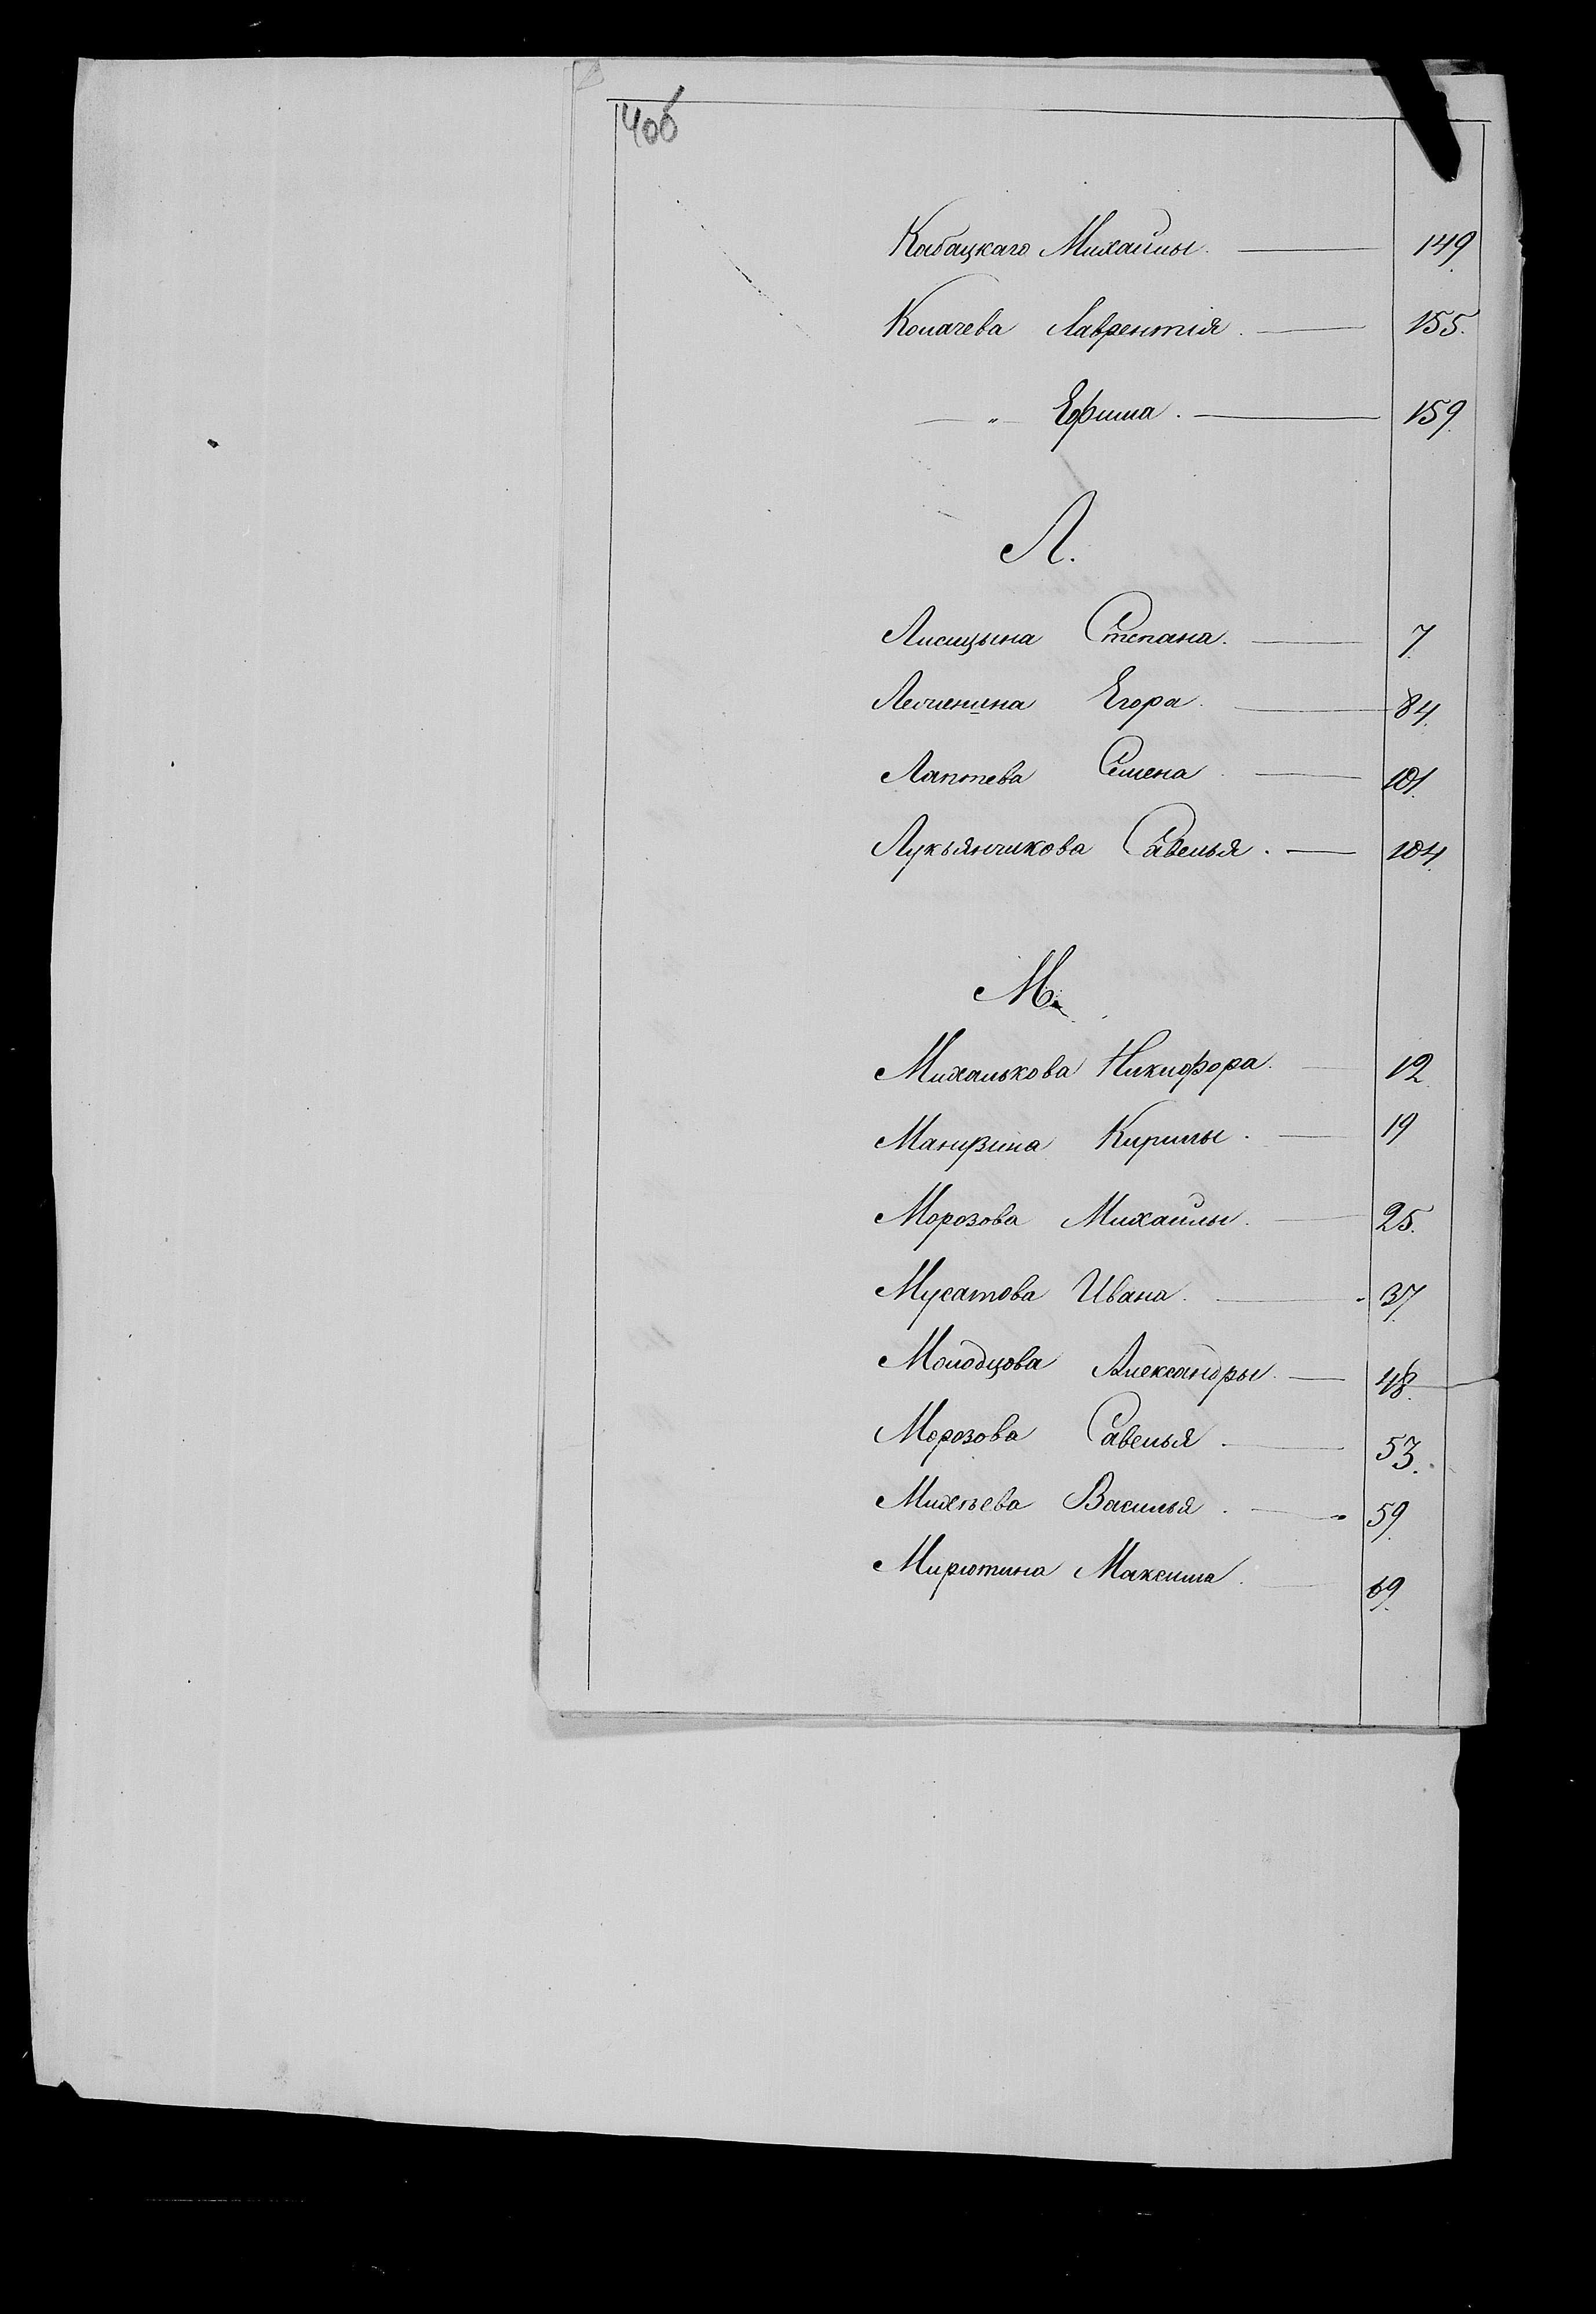 4об
Кабацкаго Михайлы. 149.
Колачева Лаврентія. 155.
— " — Ефима. 159.
Л.
Лисицына Степана. 7.
Егора. 84.
Лаптева Семена. 101.
Лукьянчикова Савелья. 104.
М.
Михалькова Никифора. 12.
Кирилы. 19
Морозова Михайлы. 25.
Мусатова Ивана. 37.
Молодцова Александры. 48.
Морозова Савелья. 53.
Михѣева Василья. 59.
Мирютина Максима. 69.